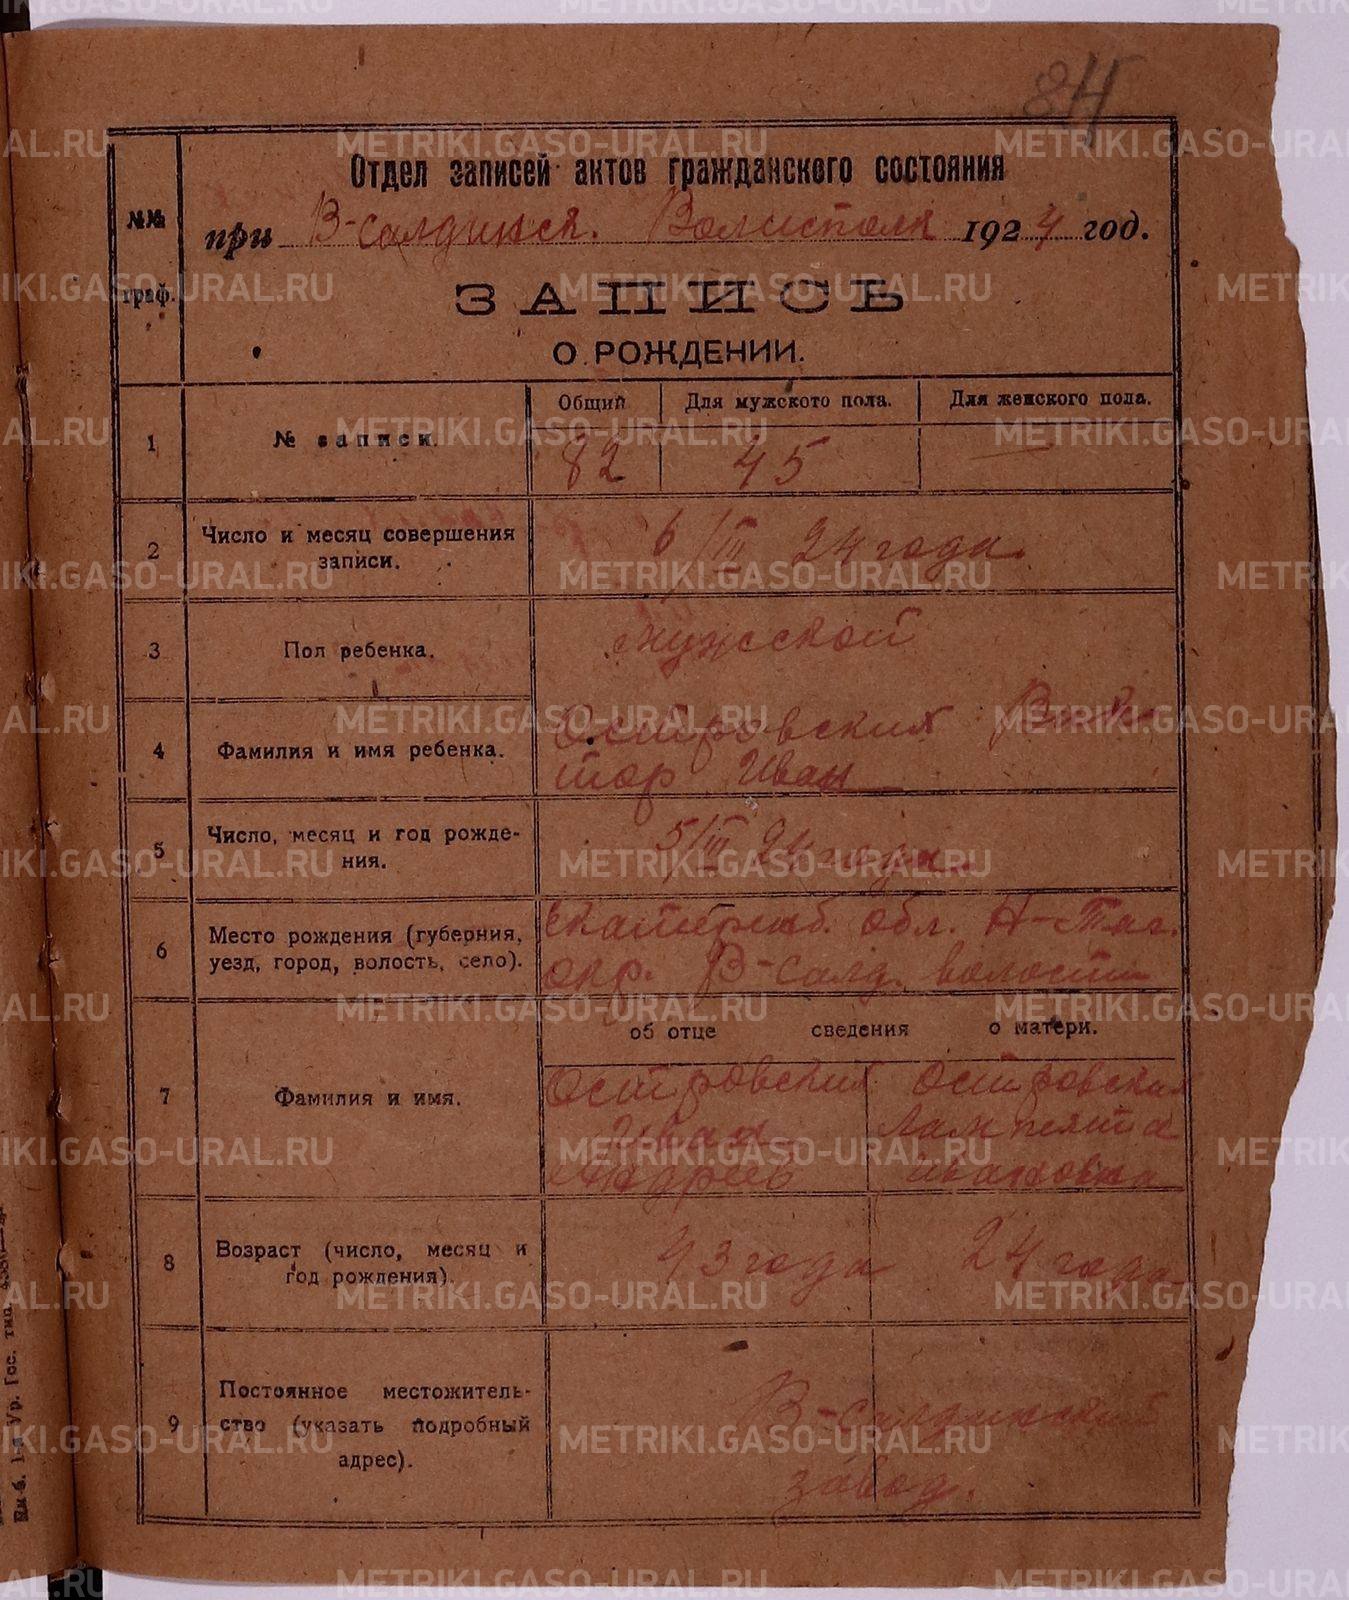 84
Отдел записей актов гражданского состояния
при В-салдинск. Волисполк 1924 год.
№№ граф.
ЗАПИСЬ
О РОЖДЕНИИ.
Общий Для мужского пола. Для женского пола.
1 № записи. 82 45 —
2 Число и месяц совершения
записи. 6/III 24 года.
3 Пол ребенка. мужской
4 Фамилия и имя ребенка. Островских Вик
тор Иван
5 Число, месяц и год рожде-
ния. 5/III 24 года
6 Место рождения (губерния,
уезд, город, волость, село). Екатеринб. обл. Н-Таг.
окр. В-салд. волости
об отце сведения о матери.
7 Фамилия и имя. Островских Островских
Иван
Андреев Ивановна
8 Возраст (число, месяц и
год рождения). 43 года 24 года
9 Постоянное местожитель-
ство (указать подробный
адрес). В-салдинский
завод.
METRIKI.GASO-URAL.RU